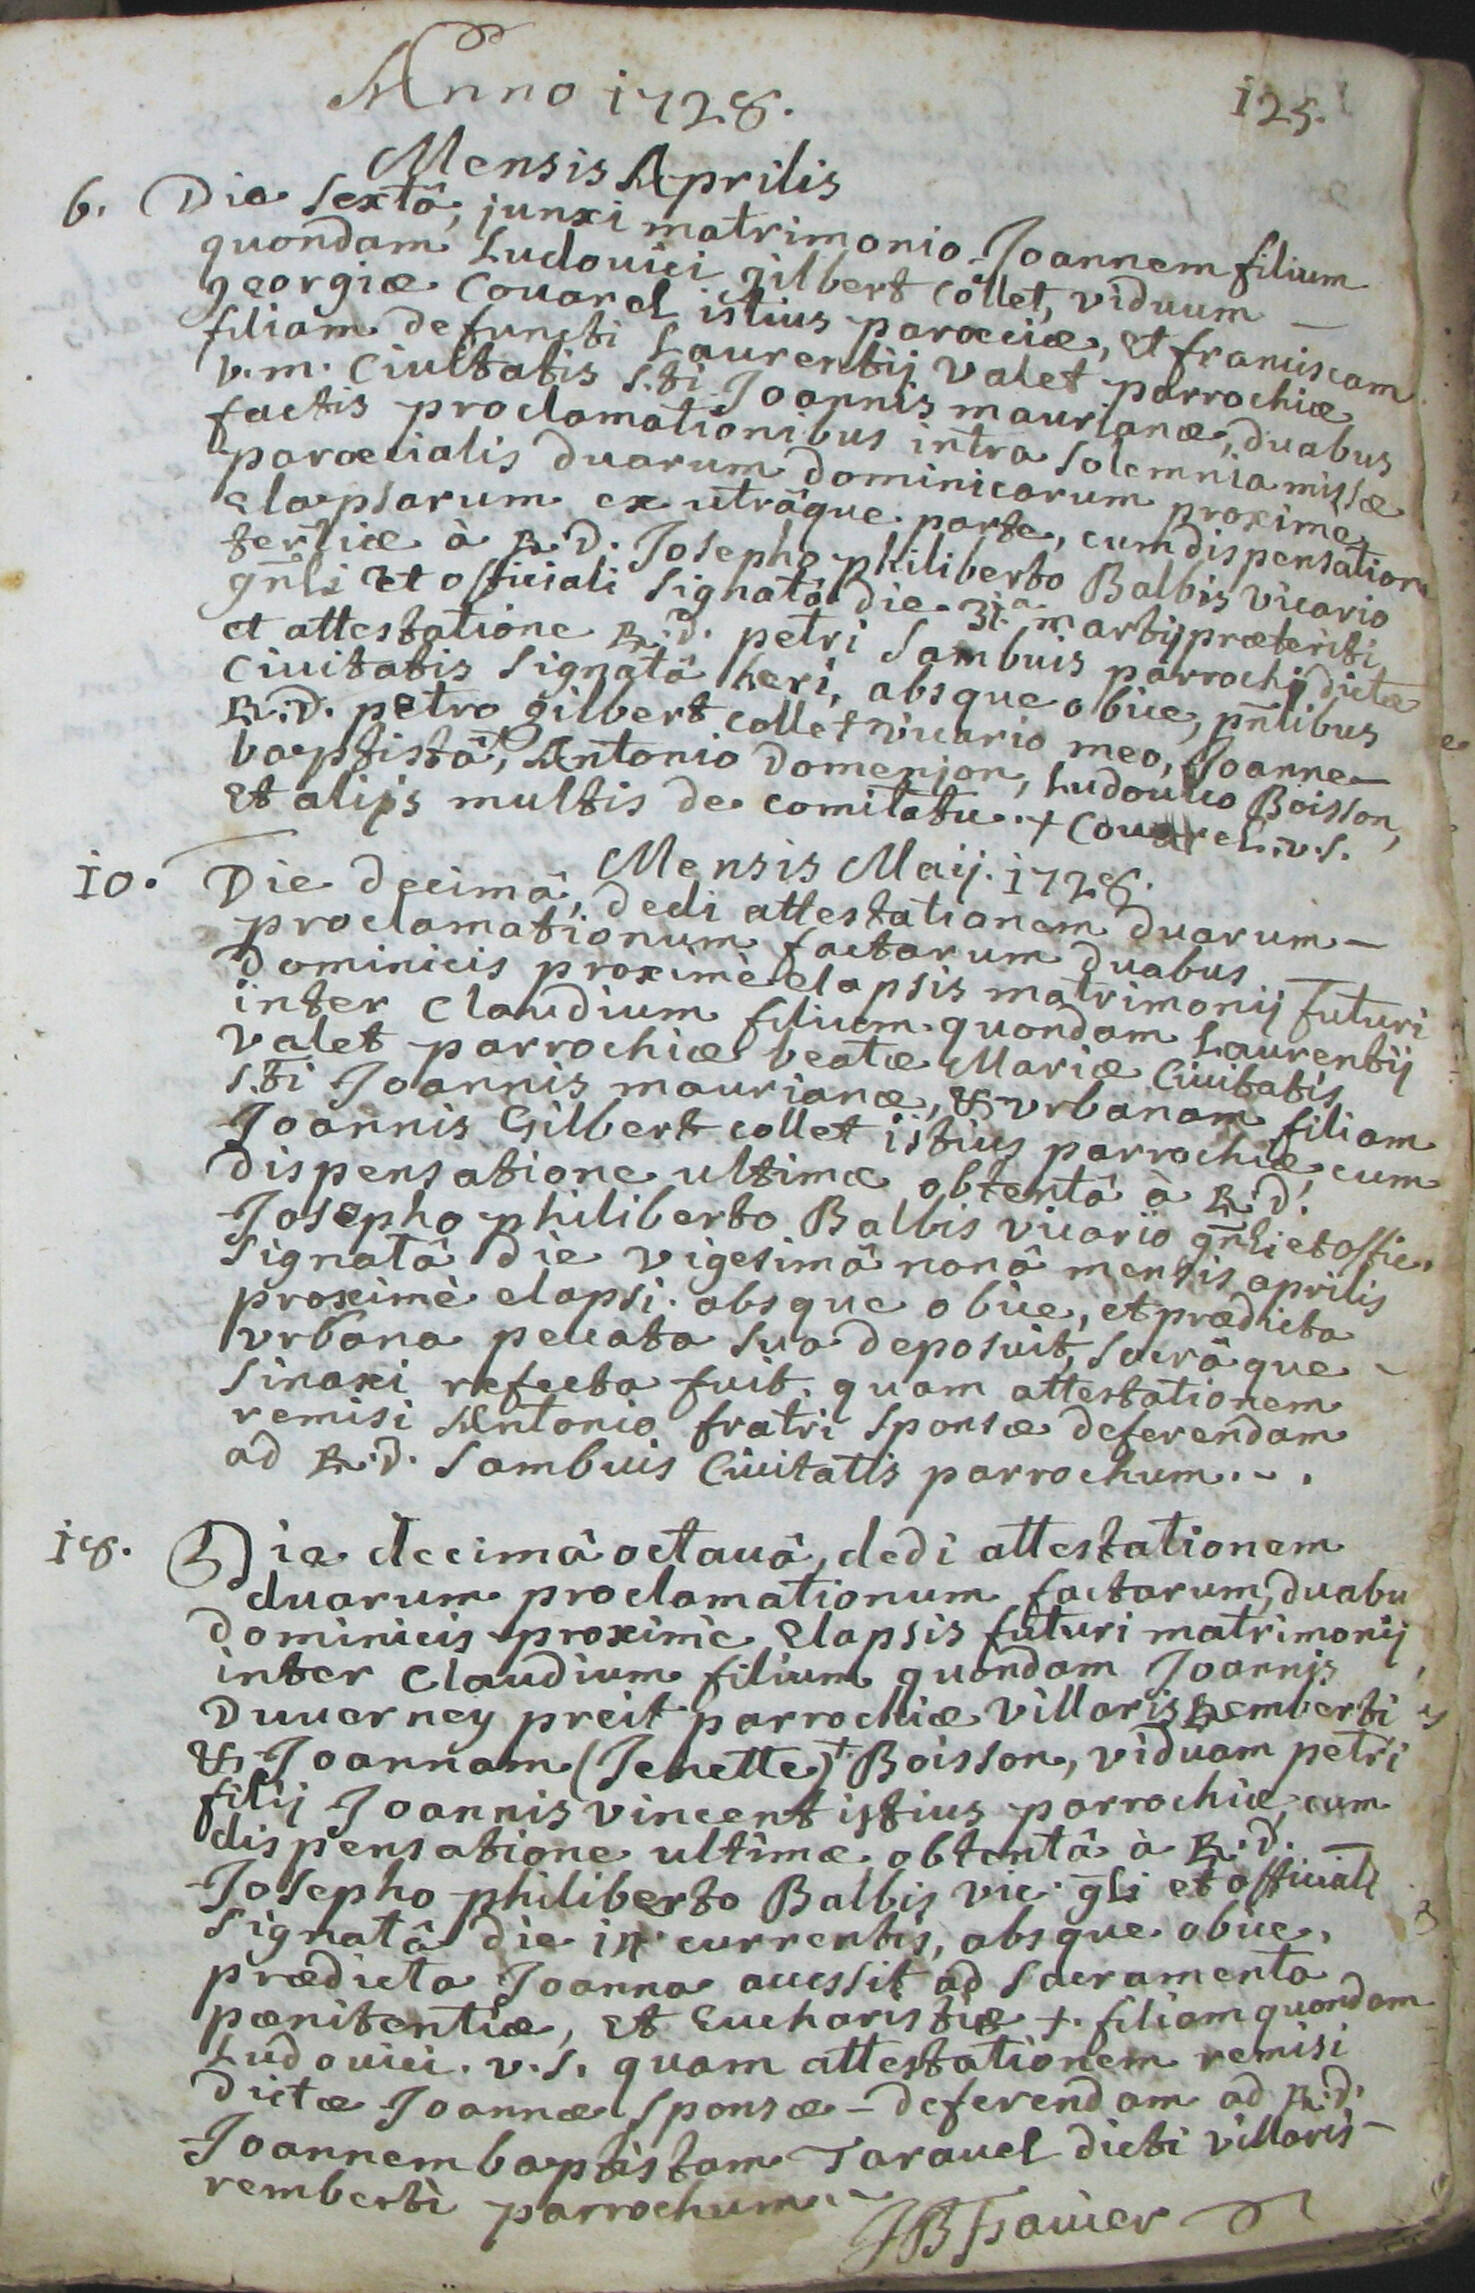 Anno 1728.
125.
Mensis Aprilis
6. Die sextâ, junxi matrimonio Joannem filium
quondam Ludouici gilbert collet, viduum —
georgiæ Couarel istius parœciæ, et franciscam
filiam defuncti Laurentij valet parrochiæ
b.m. Ciuitatis S.ti Joannis maurianæ, duabus
factis proclamationibus intra solemnia missæ
parœcialis duarum dominicarum proximè
elapsarum ex utrâque parte, cum dispensatione
tertiæ à R.D. Josepho philiberto Balbis vicario
gñli et officiali signatâ die 31.a martij præteriti,
et attestatione R.d. petri Sambuis parrochi dictæ
Ciuitatis signatâ heri, absque obice, pñtibus
R.D. petro gilbert collet vicario meo, Joanne —
baptistâ, Antonio Domenjon, Ludouico Boisson,
et alijs multis de comitatu. + Couarel. v.s.
Mensis Maij. 1728.
10. Die decimâ, dedi attestationem duarum —
proclamationum factarum duabus —
dominicis proximè elapsis matrimonij futuri
inter Claudium filium quondam Laurentij
valet parrochiæ beatæ Mariæ Ciuitatis
S.ti Joannis maurianæ, & vrbanam filiam
Joannis Gilbert collet istius parrochiæ, cum
dispensatione ultimæ obtentâ à R.d.
Josepho philiberto Balbis vicario gñli et offic.
signatâ die vigesimâ nonâ mensis aprilis
proximè elapsi. absque obice, et prædicta
vrbana peccata sua deposuit, sacrâque -
sinaxi refecta fuit. quam attestationem
remisi Antonio fratri sponsæ deferendam
ad R.D. Sambuis Ciuitatis parrochum. - .
18. Die decimâ octauâ, dedi attestationem
duarum proclamationum factarum, duabu
dominicis proximè elapsis futuri matrimonij
inter Claudium filium quondam Joannis
Duuerney preit parrochiæ villaris Remberti
& Joannam (Jenette)+ Boisson, viduam petri
filij Joannis vincent istius parrochiæ, cum
dispensatione ultimæ obtentâ à R.d. —
Josepho philiberto Balbis vic. gli et officiali
signatâ die currentis, absque obice,
prædicta Joanna accessit ad sacramenta
pænitentiæ, et Eucharistiæ +. filiam quondam
Ludouici. v.s. quam attestationem remisi
dictæ Joannæ sponsæ - deferendam ad R.d.
Joannem baptistam Tarauel dicti villaris -
remberti parrochum. -